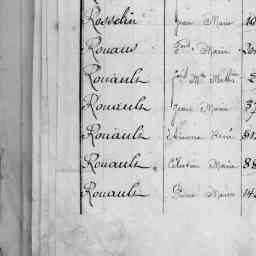 Rosselin Jean Marie 10
Rouaus Jph Marie 20
Rouault Jph Mie Mathn
Rouault Jean Marie 37
Rouault Etienne René
Rouault Célestin Marie 88
Rouault Pierre Marie 142